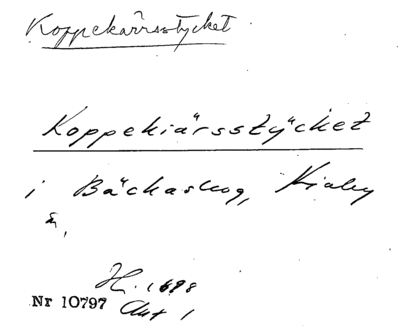 Koppekärrsstycket
Koppekiärsstÿcket
i Bäckaskog, Kiaby
Nr 10797